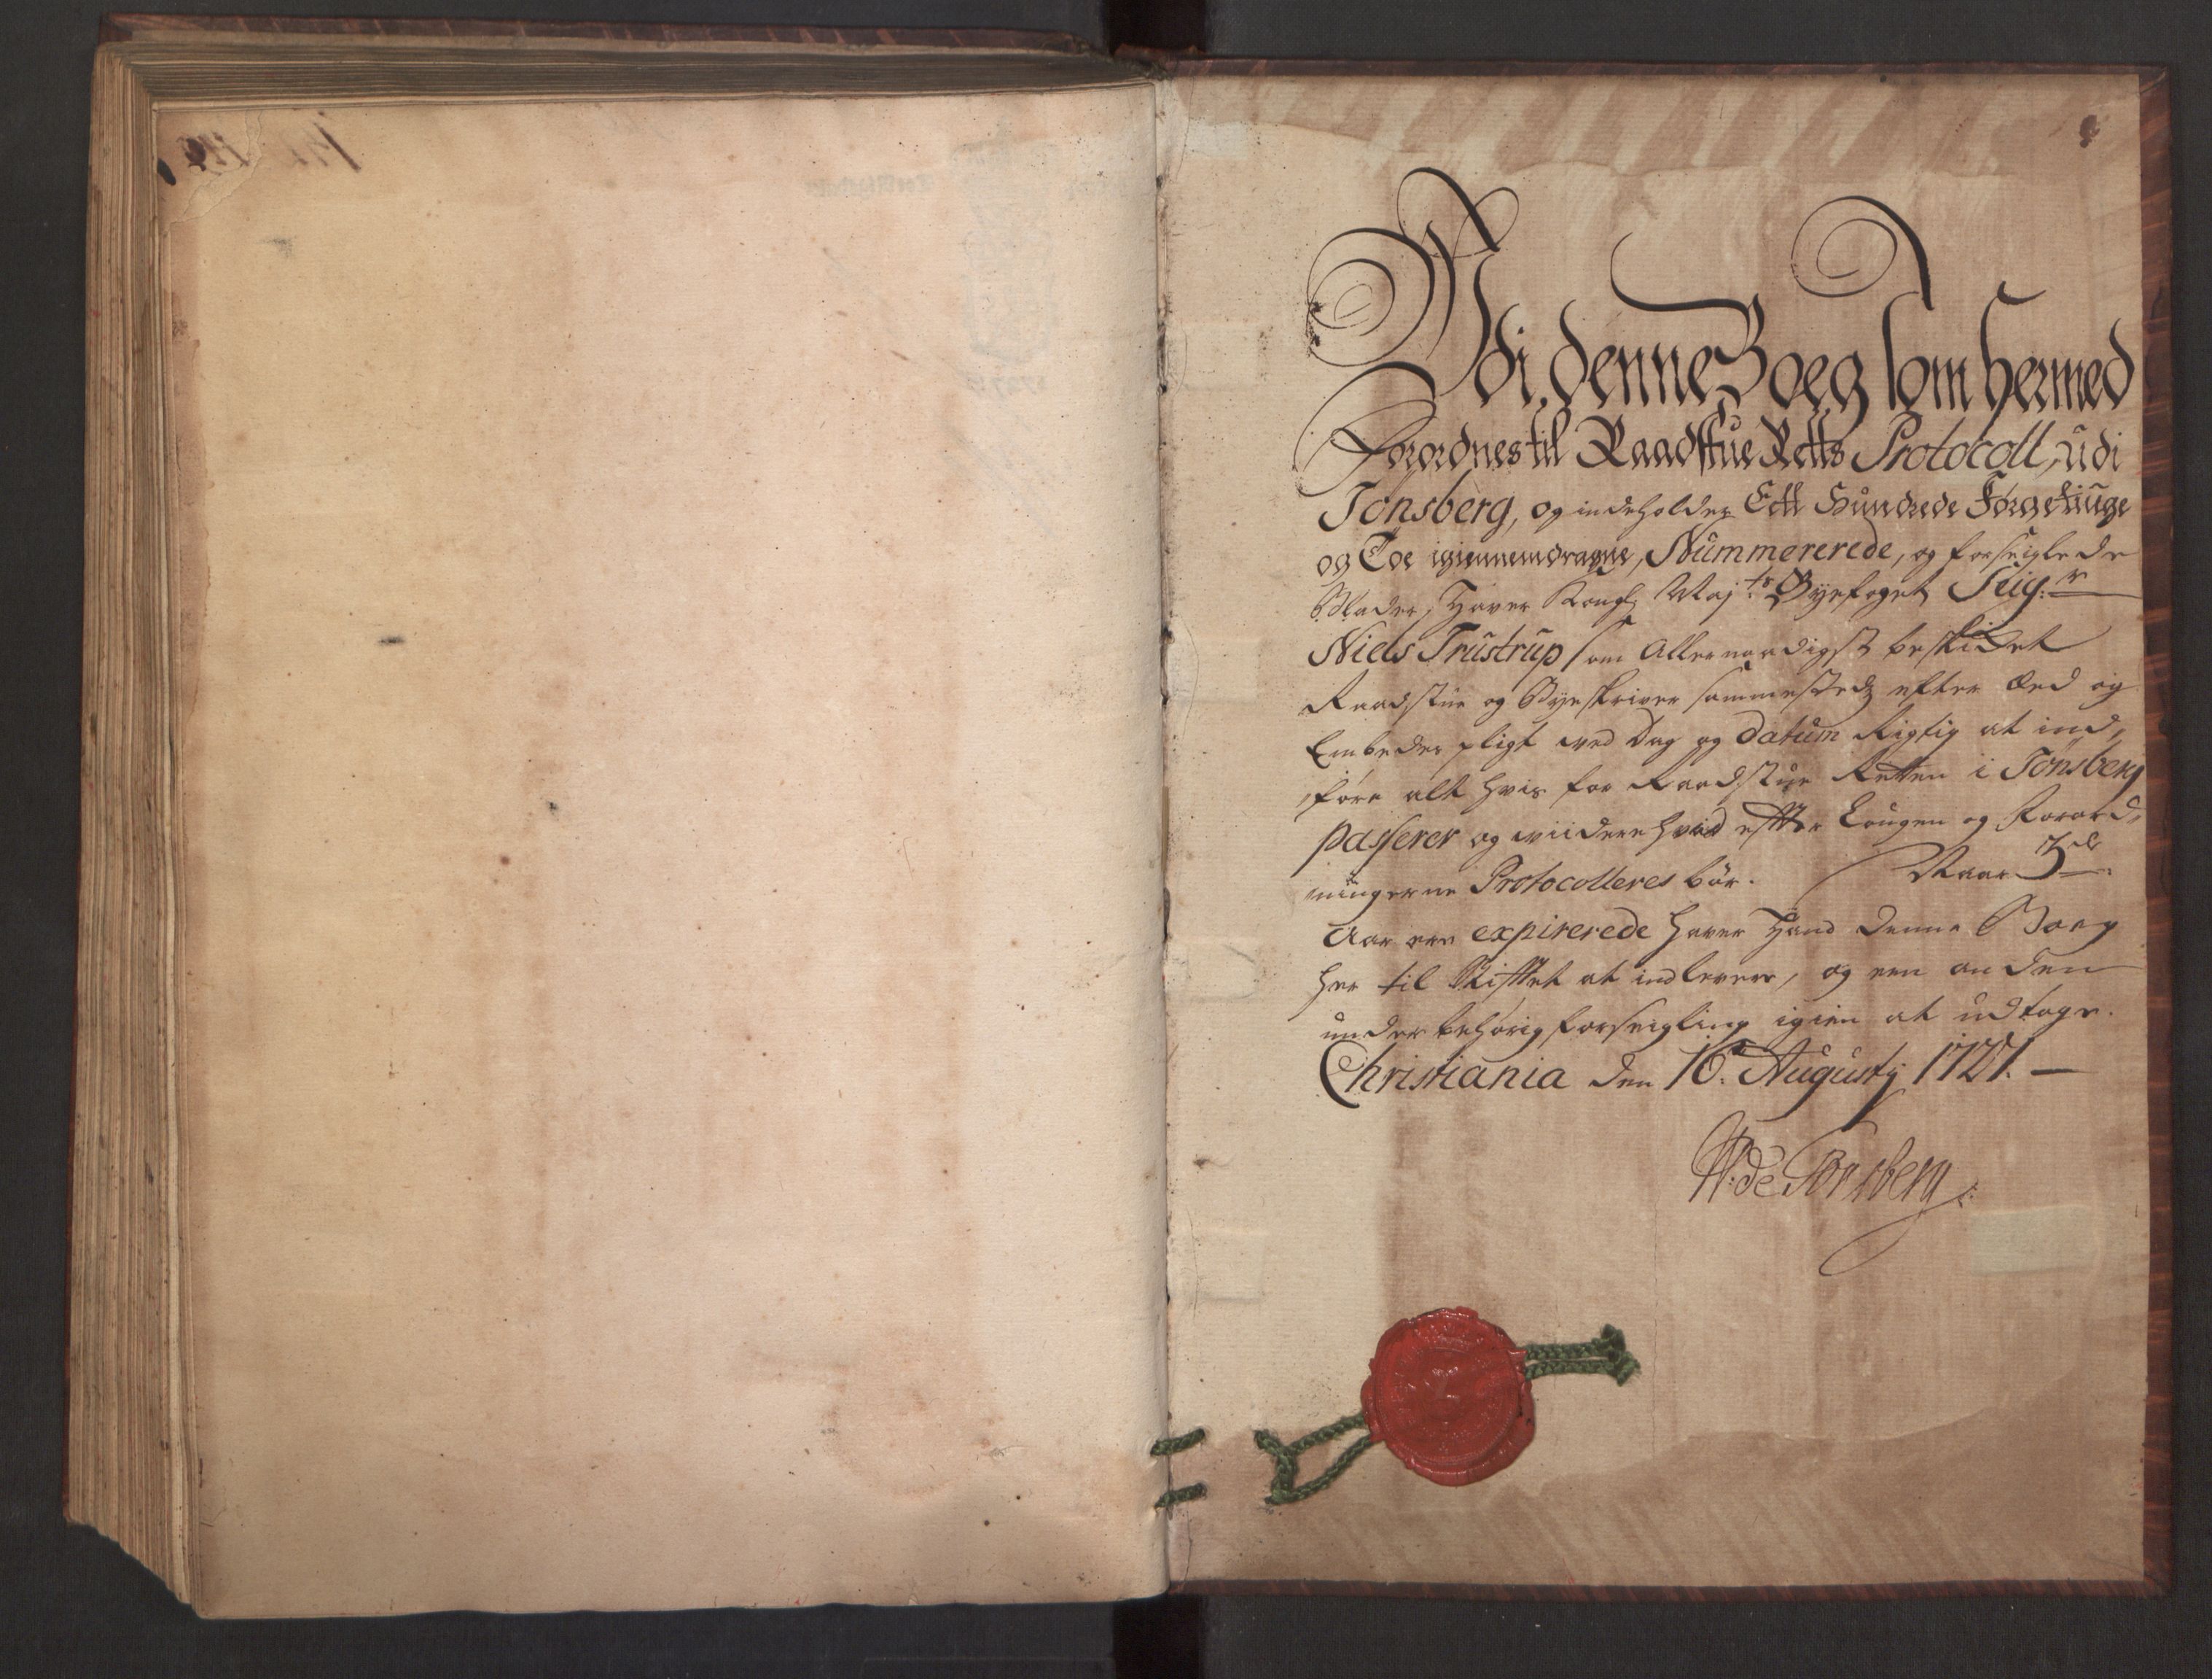 Udi denne Boeg som hermed
Forordnes til Raadstue Retts Protocoll, udi
Tönsberg, og indeholder Ett Hundrede Førgetiuge
og Toe igiennemdragne, Nummererede, og forseiglede
Blader, Haver Kongl Maj.ts Byefoget Sig.r
Niels Trustrup som Allernaadigst beskicket
Raadstue og Byeskriver sammestedz efter Eed og
Embedes pligt ved Dag og Datum Rigtig at ind,
,føre alt hvis for Raadstue Retten i Tönsberg
passerer og viidere hvad effter Lougen og Forord,
ningerne Protocolleres bör. Naar 3de
Aar ere expirerede haver Hand denne Boeg
her til Stifftet at indlevere, og een anden
under behörig forseigling igien at udtage.
Christiania den 16. Augustij 1727. —
W: de Tonsberg